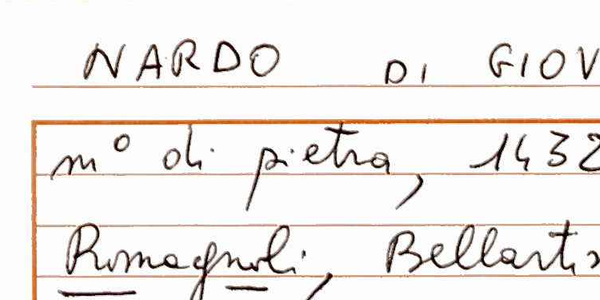 NARDO DI GIOV
mº di pietra, 1432
Romagnoli, Bellarti